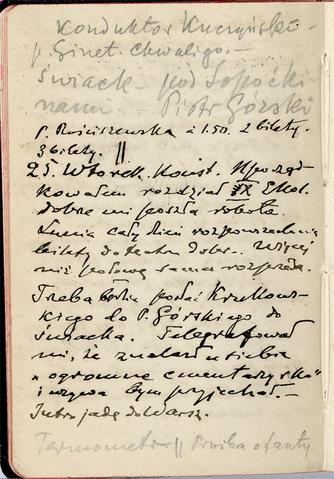 Konduktor Kuczyński -
p. Ginet. chwaliga. -
Świack - pod Sopoćki-
nami. - Piotr Górski
P. Ruściszewska à 1.50. 2 bilety.
3 bilety. ||
25. Wtorek. Konst. Uporząd-
kowałem rozdział IX Ekol.
dobrze mi poszła robota.
cały dzień rozpowszechnia
bilety do teatru dobr. Więcej
niż połowę sama rozprzed.
Trzeba będzie posłać Krukows-
kiego do P. Górskiego do
Świacka. Telegrafował
mi, że znalazł u siebie
"ogromne cmentarzysko"
i wzywa bym przyjechał. -
Jutro jadę do Warsz.
Termometr - || Prośba o fanty